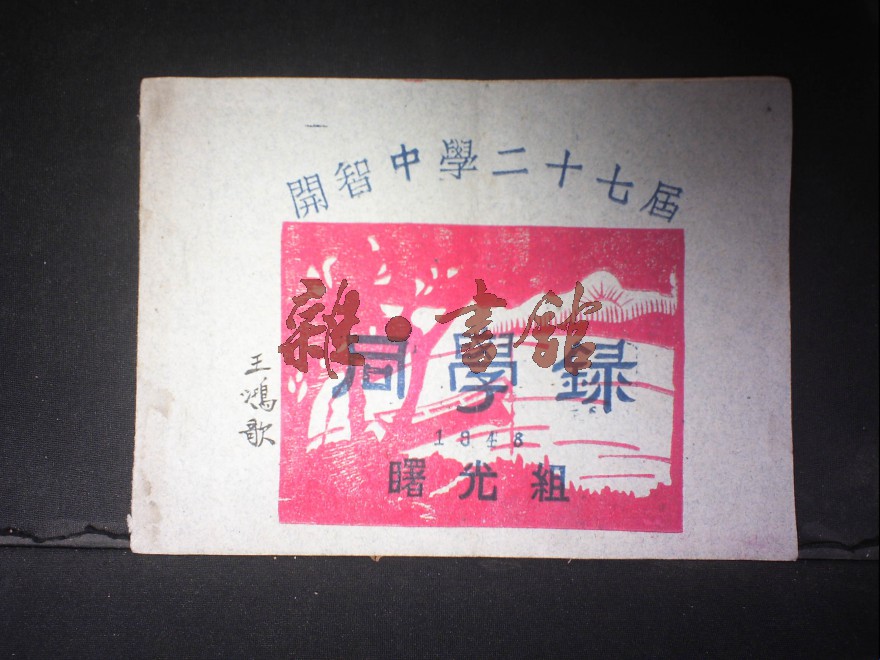 開智中學二十七屆
雜·書館
同學錄
1948
曙光組
王鴻歌